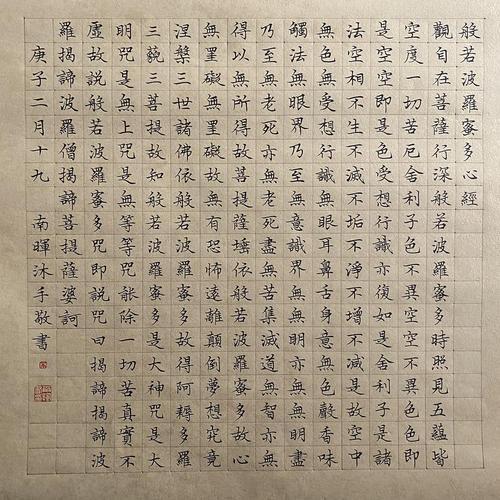 般若波羅蜜多心經
觀自在菩薩行深般若波羅蜜多時照見五蘊皆
空度一切苦厄舍利子色不異空空不異色色即
是空空即是色受想行識亦復如是舍利子是諸
法空相不生不滅不垢不淨不增不減是故空中
無色無受想行識無眼耳鼻舌身意無色聲香味
觸法無眼界乃至無意識界無無明亦無無明盡
乃至無老死亦無老死盡無苦集滅道無智亦無
得以無所得故菩提薩埵依般若波羅蜜多故心
無罣礙無罣礙故無有恐怖遠離顛倒夢想究竟
涅槃三世諸佛依般若波羅蜜多故得阿耨多羅
三藐三菩提故知般若波羅蜜多是大神咒是大
明咒是無上咒是無等等咒能除一切苦真實不
虛故說般若波羅蜜多咒即說咒曰揭諦揭諦波
羅揭諦波羅僧揭諦菩提薩婆訶
庚子二月十九 南暉沐手敬書